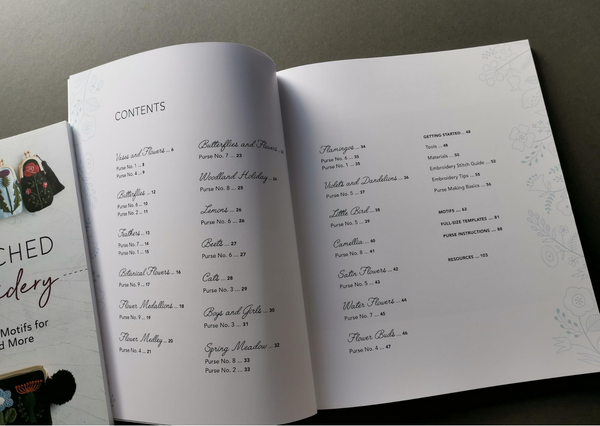 CHED
dery
Motifs for
d More
CONTENTS
Vases and Flowers ... 6
Purse No. 1 ... 8
Purse No. 4 ... 9
Butterflies ... 12
Purse No. 2 ... 11
Feathers ... 13
Purse No. 7 ... 14
Purse No. 1 ... 15
Botanical Flowers ... 16
Purse No. 8 ... 17
Flower Medallions ... 18
Purse No. 9 ... 19
Flower Medley ... 20
Purse No. 4 ... 21
Butterflies and Flowers ...
Purse No. 7 ... 23
Woodland Holiday ...
Purse No. 8 ... 25
Lemons ... 26
Purse No. 6 ... 26
Beets ... 27
Purse No. 6 ... 27
Cats ... 28
Purse No. 3 ... 29
Boys and Girls ... 30
Purse No. 3 ... 31
Spring Meadow ... 32
Purse No. 8 ... 33
Purse No. 2 ... 33
Flamingos ... 34
Purse No. 1 ... 35
Violets and Dandelions ... 36
Purse No. 5 ... 37
Little Bird ... 38
Purse No. 5 ... 39
Camellia ... 40
Purse No. 8 ... 41
Satin Flowers ... 42
Purse No. 5 ... 43
Water Flowers ... 44
Purse No. 7 ... 45
Flower Buds ... 46
Purse No. 4 ... 47
GETTING STARTED ... 48
Tools ... 48
Materials ... 50
Embroidery Stitch Guide ... 52
Embroidery Tips ... 55
Purse Making Basics ... 56
MOTIFS ... 62
FULL-SIZE TEMPLATES ... 81
PURSE INSTRUCTIONS ... 88
RESOURCES ... 103